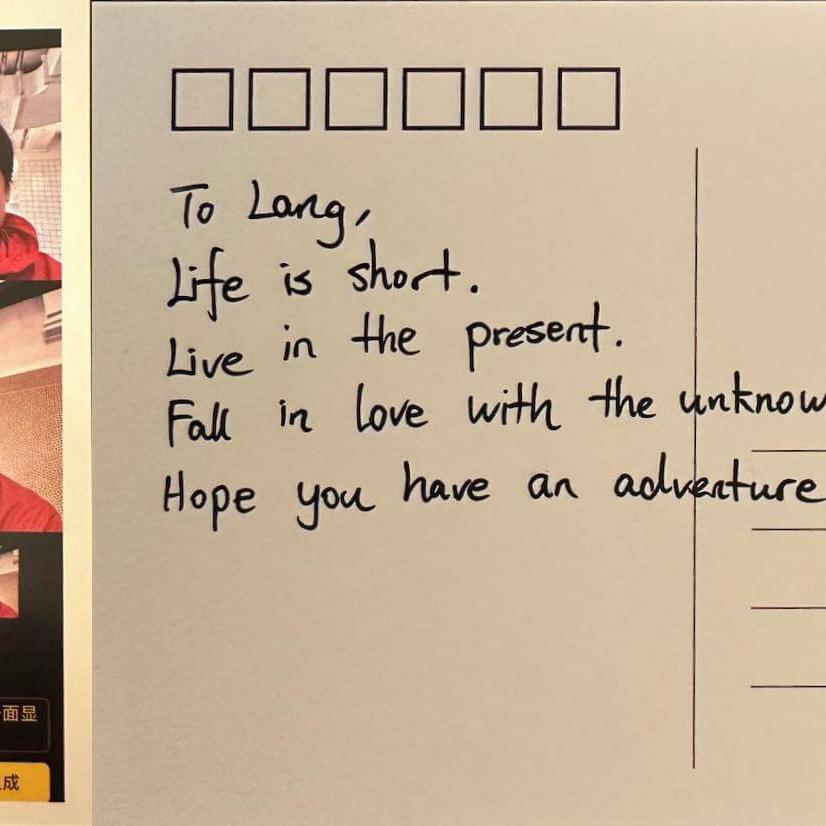 To Lang,
Life is short.
Live in the present.
Fall in love with the unknow
Hope you have an adventure
面显
成